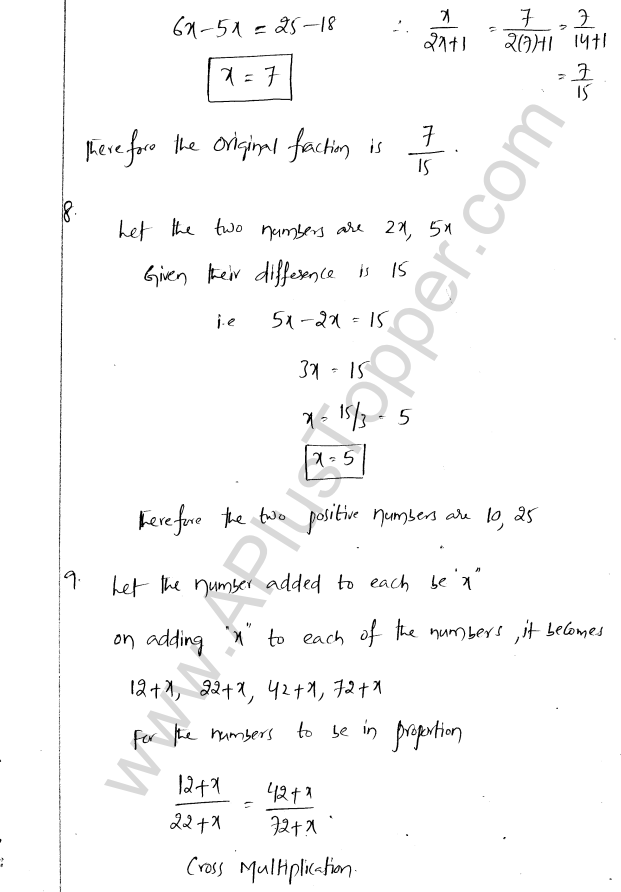 6x-5x = 25-18 ∴ x/2x+1 = 7/2(7)+1 = 7/14+1
x = 7 = 7/15
Therefore the original fraction is 7/15.
8.
Let the two numbers are 2x, 5x
Given their difference is 15
i.e 5x-2x = 15
3x = 15
x = 15/3 = 5
x = 5
Therefore the two positive numbers are 10, 25
9. Let the number added to each be "x"
on adding "x" to each of the numbers, it becomes
12+x, 22+x, 42+x, 72+x
For the numbers to be in proportion
12+x/22+x = 42+x/72+x.
Cross Multiplication.
www.APlusTopper.com